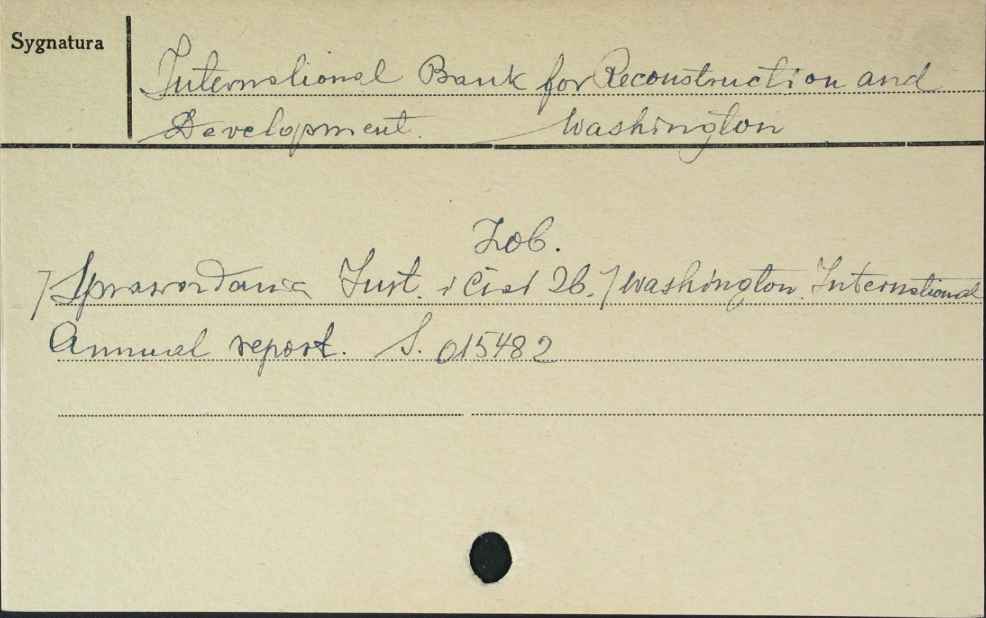 Sygnatura
International Bank for Reconstruction and
Development. Washington
Zob.
/Sprawozdania Inst. i Ciał Zb./ Washington. International
Annual report. S. 015482